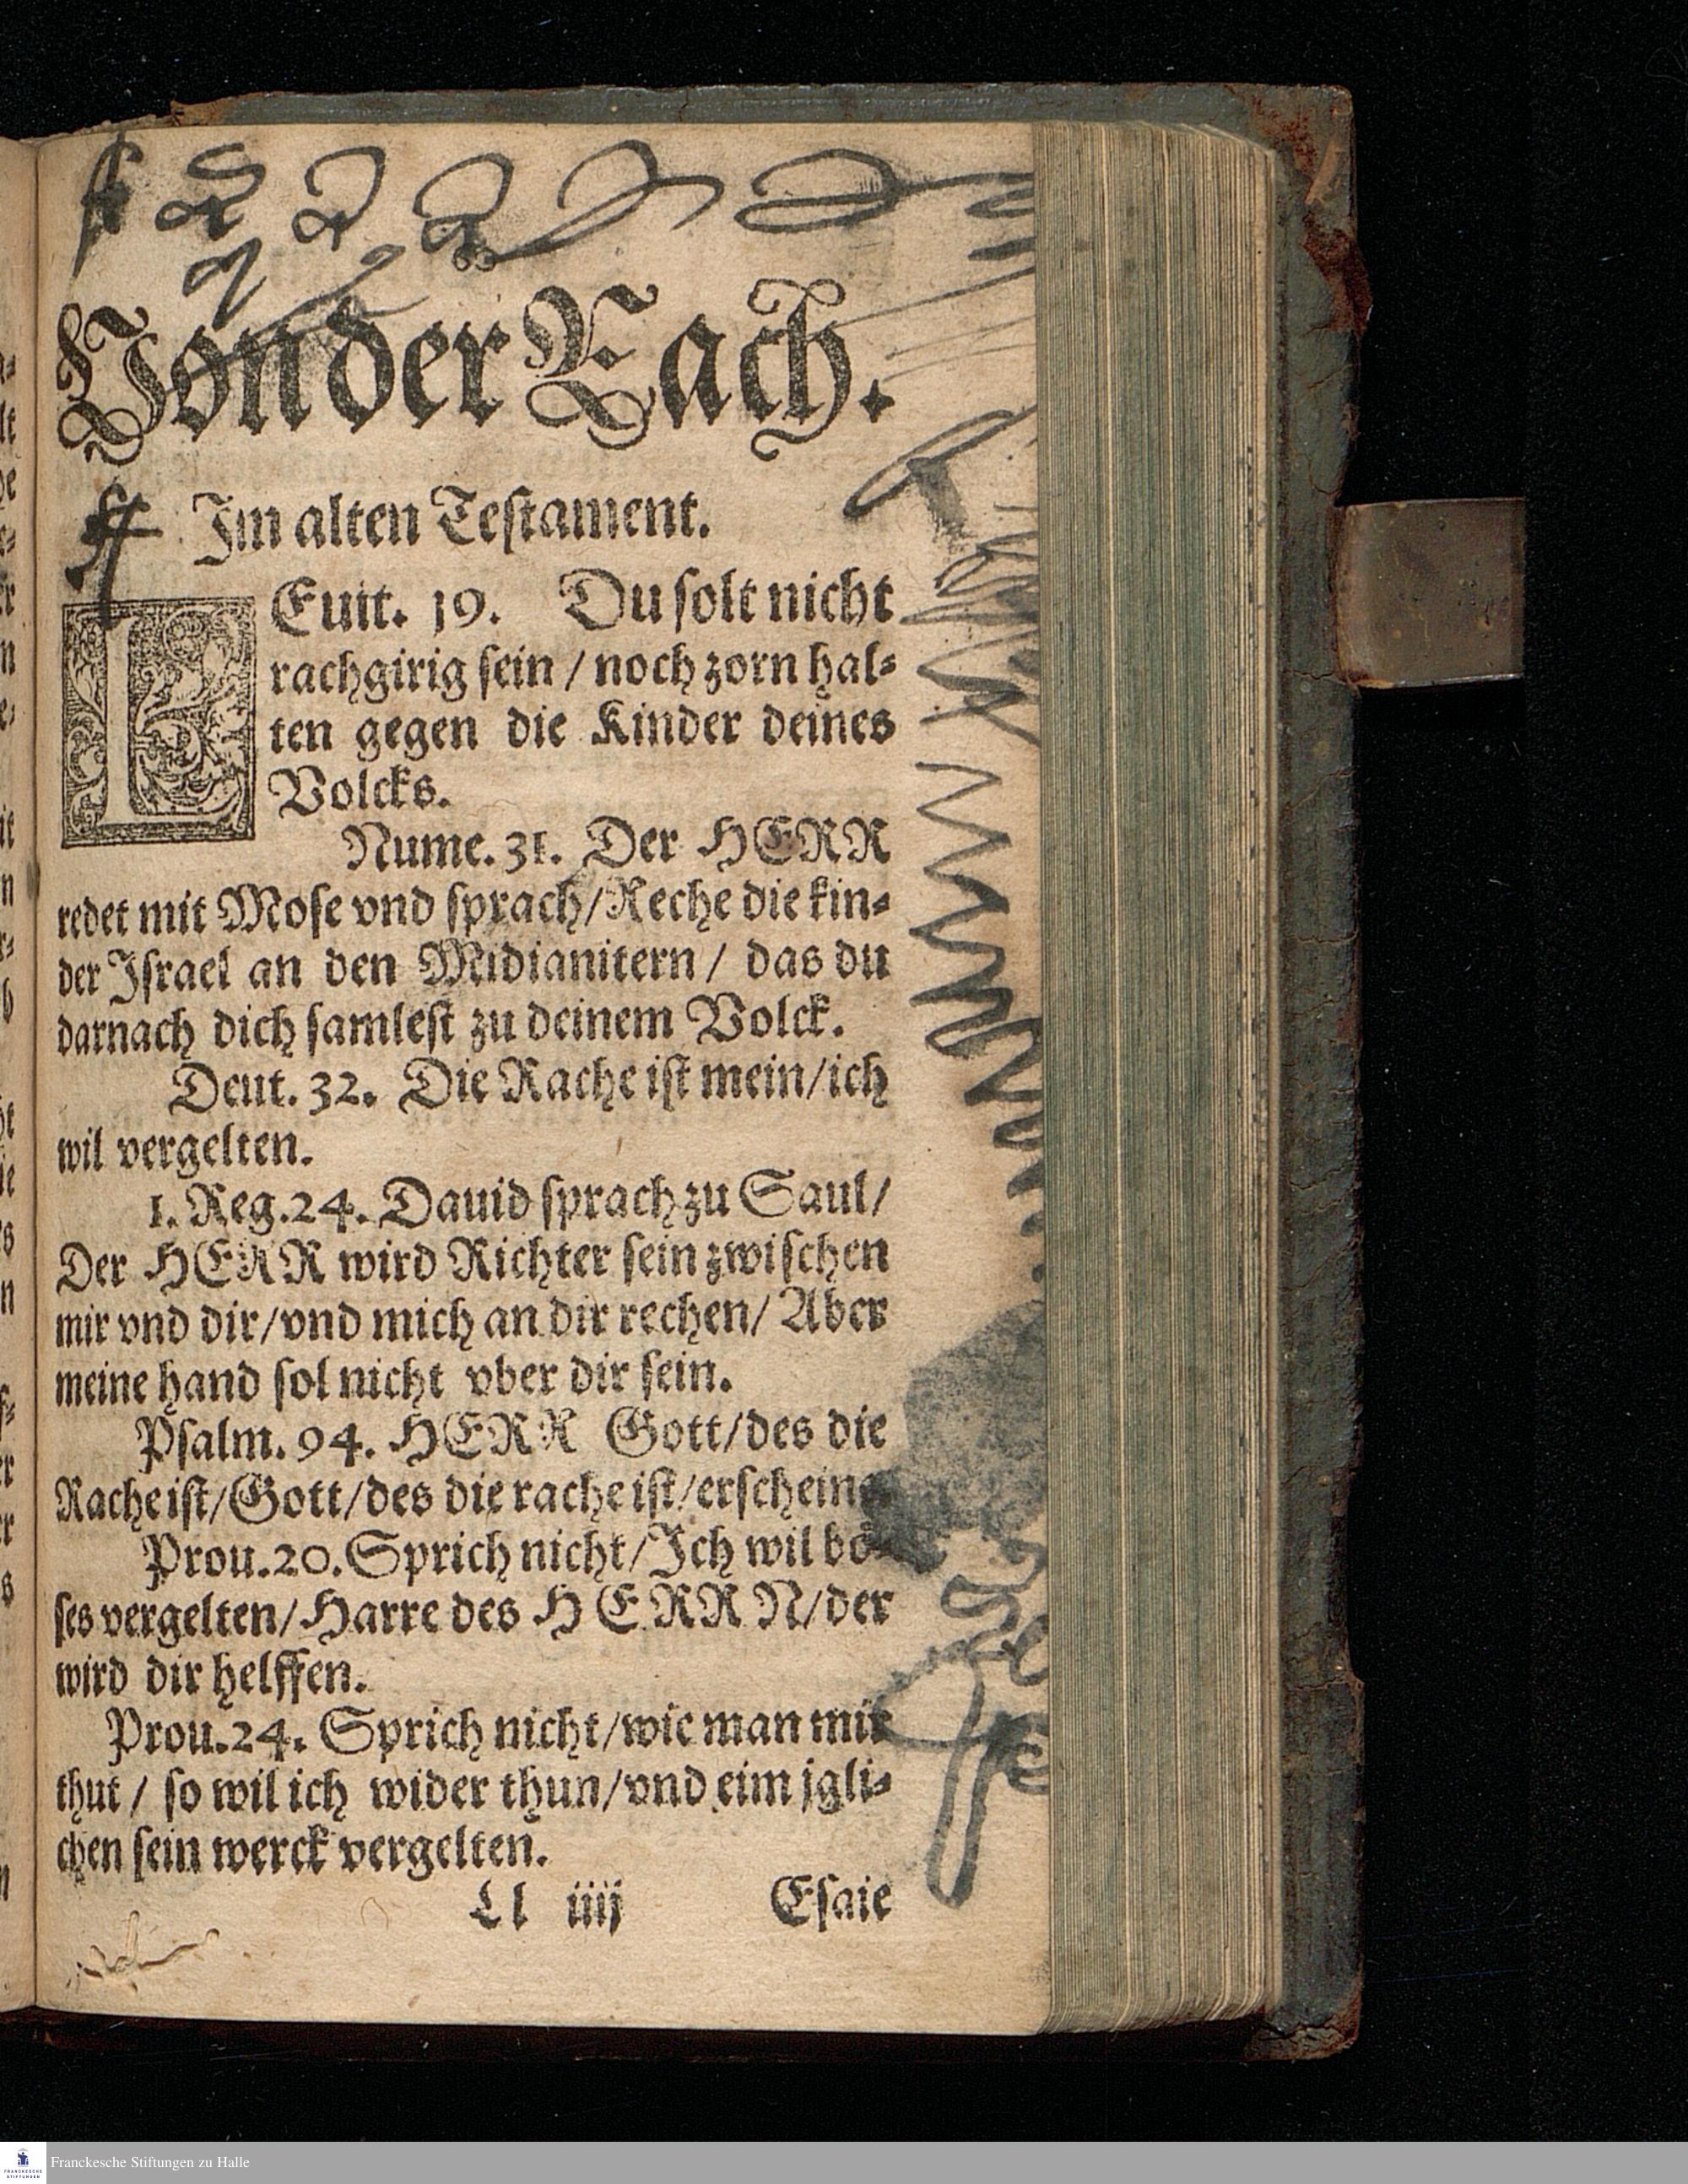 Von der Rach.
Im alten Testament.
LEuit. 19. Du solt nicht
rachgirig sein / noch zorn hal-
ten gegen die Kinder deines
Volcks.
Nume. 31. Der HERR
redet mit Mose vnd sprach/Reche die kin-
der Israel an den Midianitern / das du
darnach dich samlest zu deinem Volck.
Deut. 32. Die Rache ist mein/ich
wil vergelten.
1. Reg. 24. Dauid sprach zu Saul/
Der HERR wird Richter sein zwischen
mir vnd dir/vnd mich an dir rechen/ Aber
meine hand sol nicht vber dir sein.
Psalm. 94. HERR Gott/des die
Rache ist/Gott/des die rache ist/erscheine.
Prou. 20. Sprich nicht/Ich wil bö-
ses vergelten/Harre des HERRN/der
wird dir helffen.
Prou. 24. Sprich nicht/wie man mir
thut / so wil ich wider thun/vnd eim jgli-
chen sein werck vergelten.
Ll iiij Esaie
Franckesche Stiftungen zu Halle